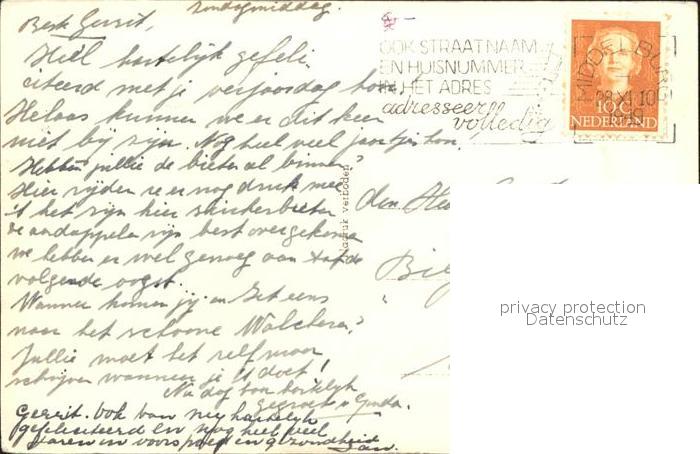 Zondagmiddag.
Beste Gerrit,
Heel hartelijk gefeli
citeerd met je verjaardag hoor!
Helaas kunnen we er dit keer
niet bij zijn. Nog heel veel jaartjes hoor.
Hebben jullie de bieten al binnen?
Hier rijden ze er nog druk mee
't het zijn hier suikerbieten
de aardappelen zijn best overgekomen
we hebben er wel genoeg aan tot de
volgende oogst.
Wanneer komen jij en eens
naar het schoone Walcheren?
Jullie moet het zelf maar
schrijven wanneer je 't doet!
Nu dag hoor hartelijk
gegroet
Gerrit. Ook van mij hartelijk
gefeliciteerd en nog heel veel
jaren in voorspoed en gezondheid
Jan.
OOK STRAATNAAM
EN HUISNUMMER
IN HET ADRES
adresseer
volledig
MIDDELBURG
28.XI.10
10 C
NEDERLAND
Nadruk verboden
den
privacy protection
Datenschutz